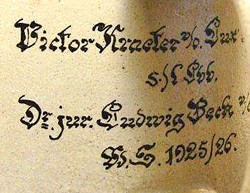 Victor Kraeler v/o. Lux
s./l. Lbb.
Dr. jur. Ludwig Beck v/
W.S. 1925/26.